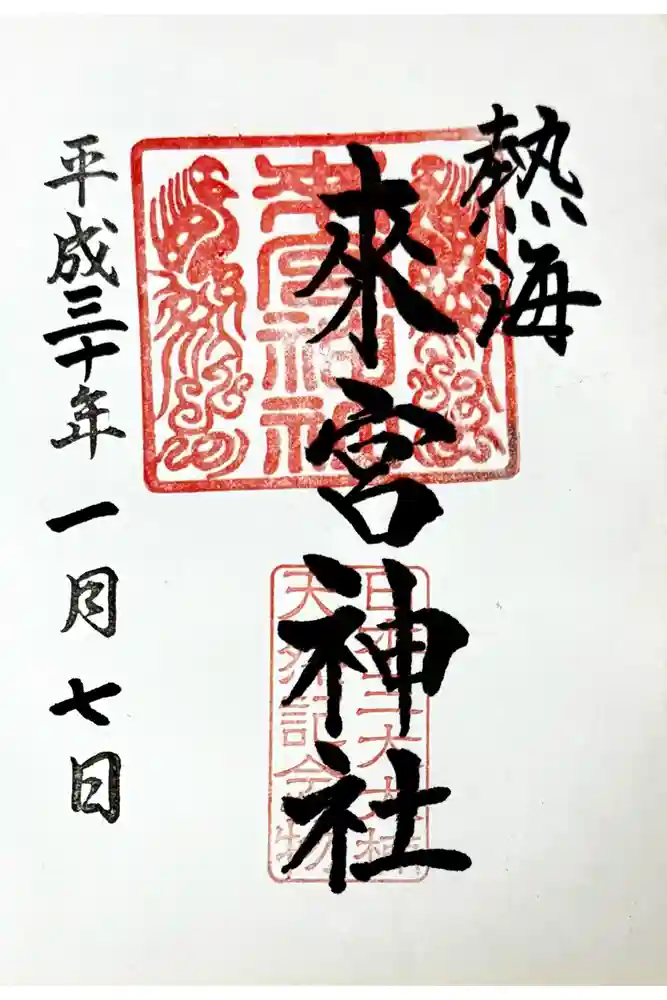 熱海
來宮神社
日本二大大楠
天然記念物
平成三十年 一月 七日